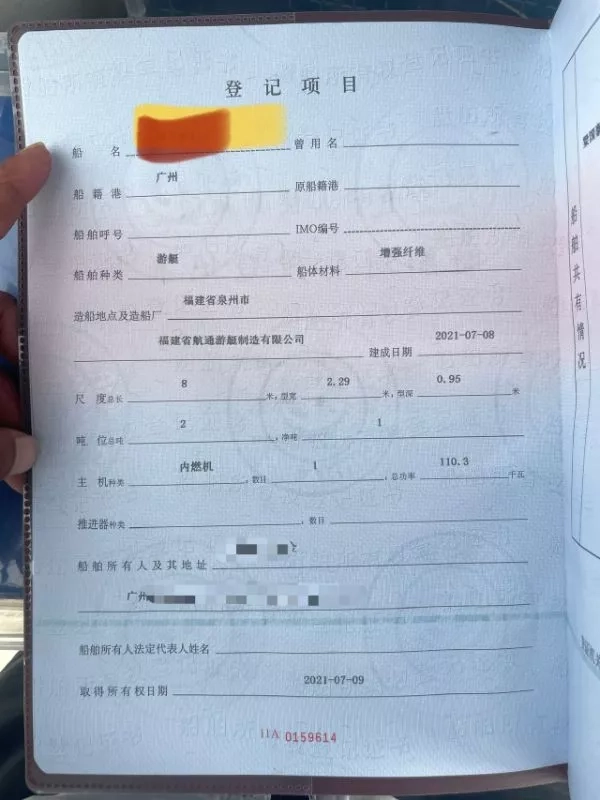 登记项目
船名 曾用名
船籍港 广州 原船籍港
船舶呼号 IMO编号
船舶种类 游艇 船体材料 增强纤维
造船地点及造船厂 福建省泉州市
福建省航通游艇制造有限公司 建成日期 2021-07-08
尺度总长 8 米，型宽 2.29 米，型深 0.95 米
吨位总吨 2 ，净吨 1
主机种类 内燃机 ，数目 1 总功率 110.3 千瓦
推进器种类 ，数目
船舶所有人及其地址
广州
船舶所有人法定代表人姓名
取得所有权日期 2021-07-09
IIA 0159614
船舶共有情况